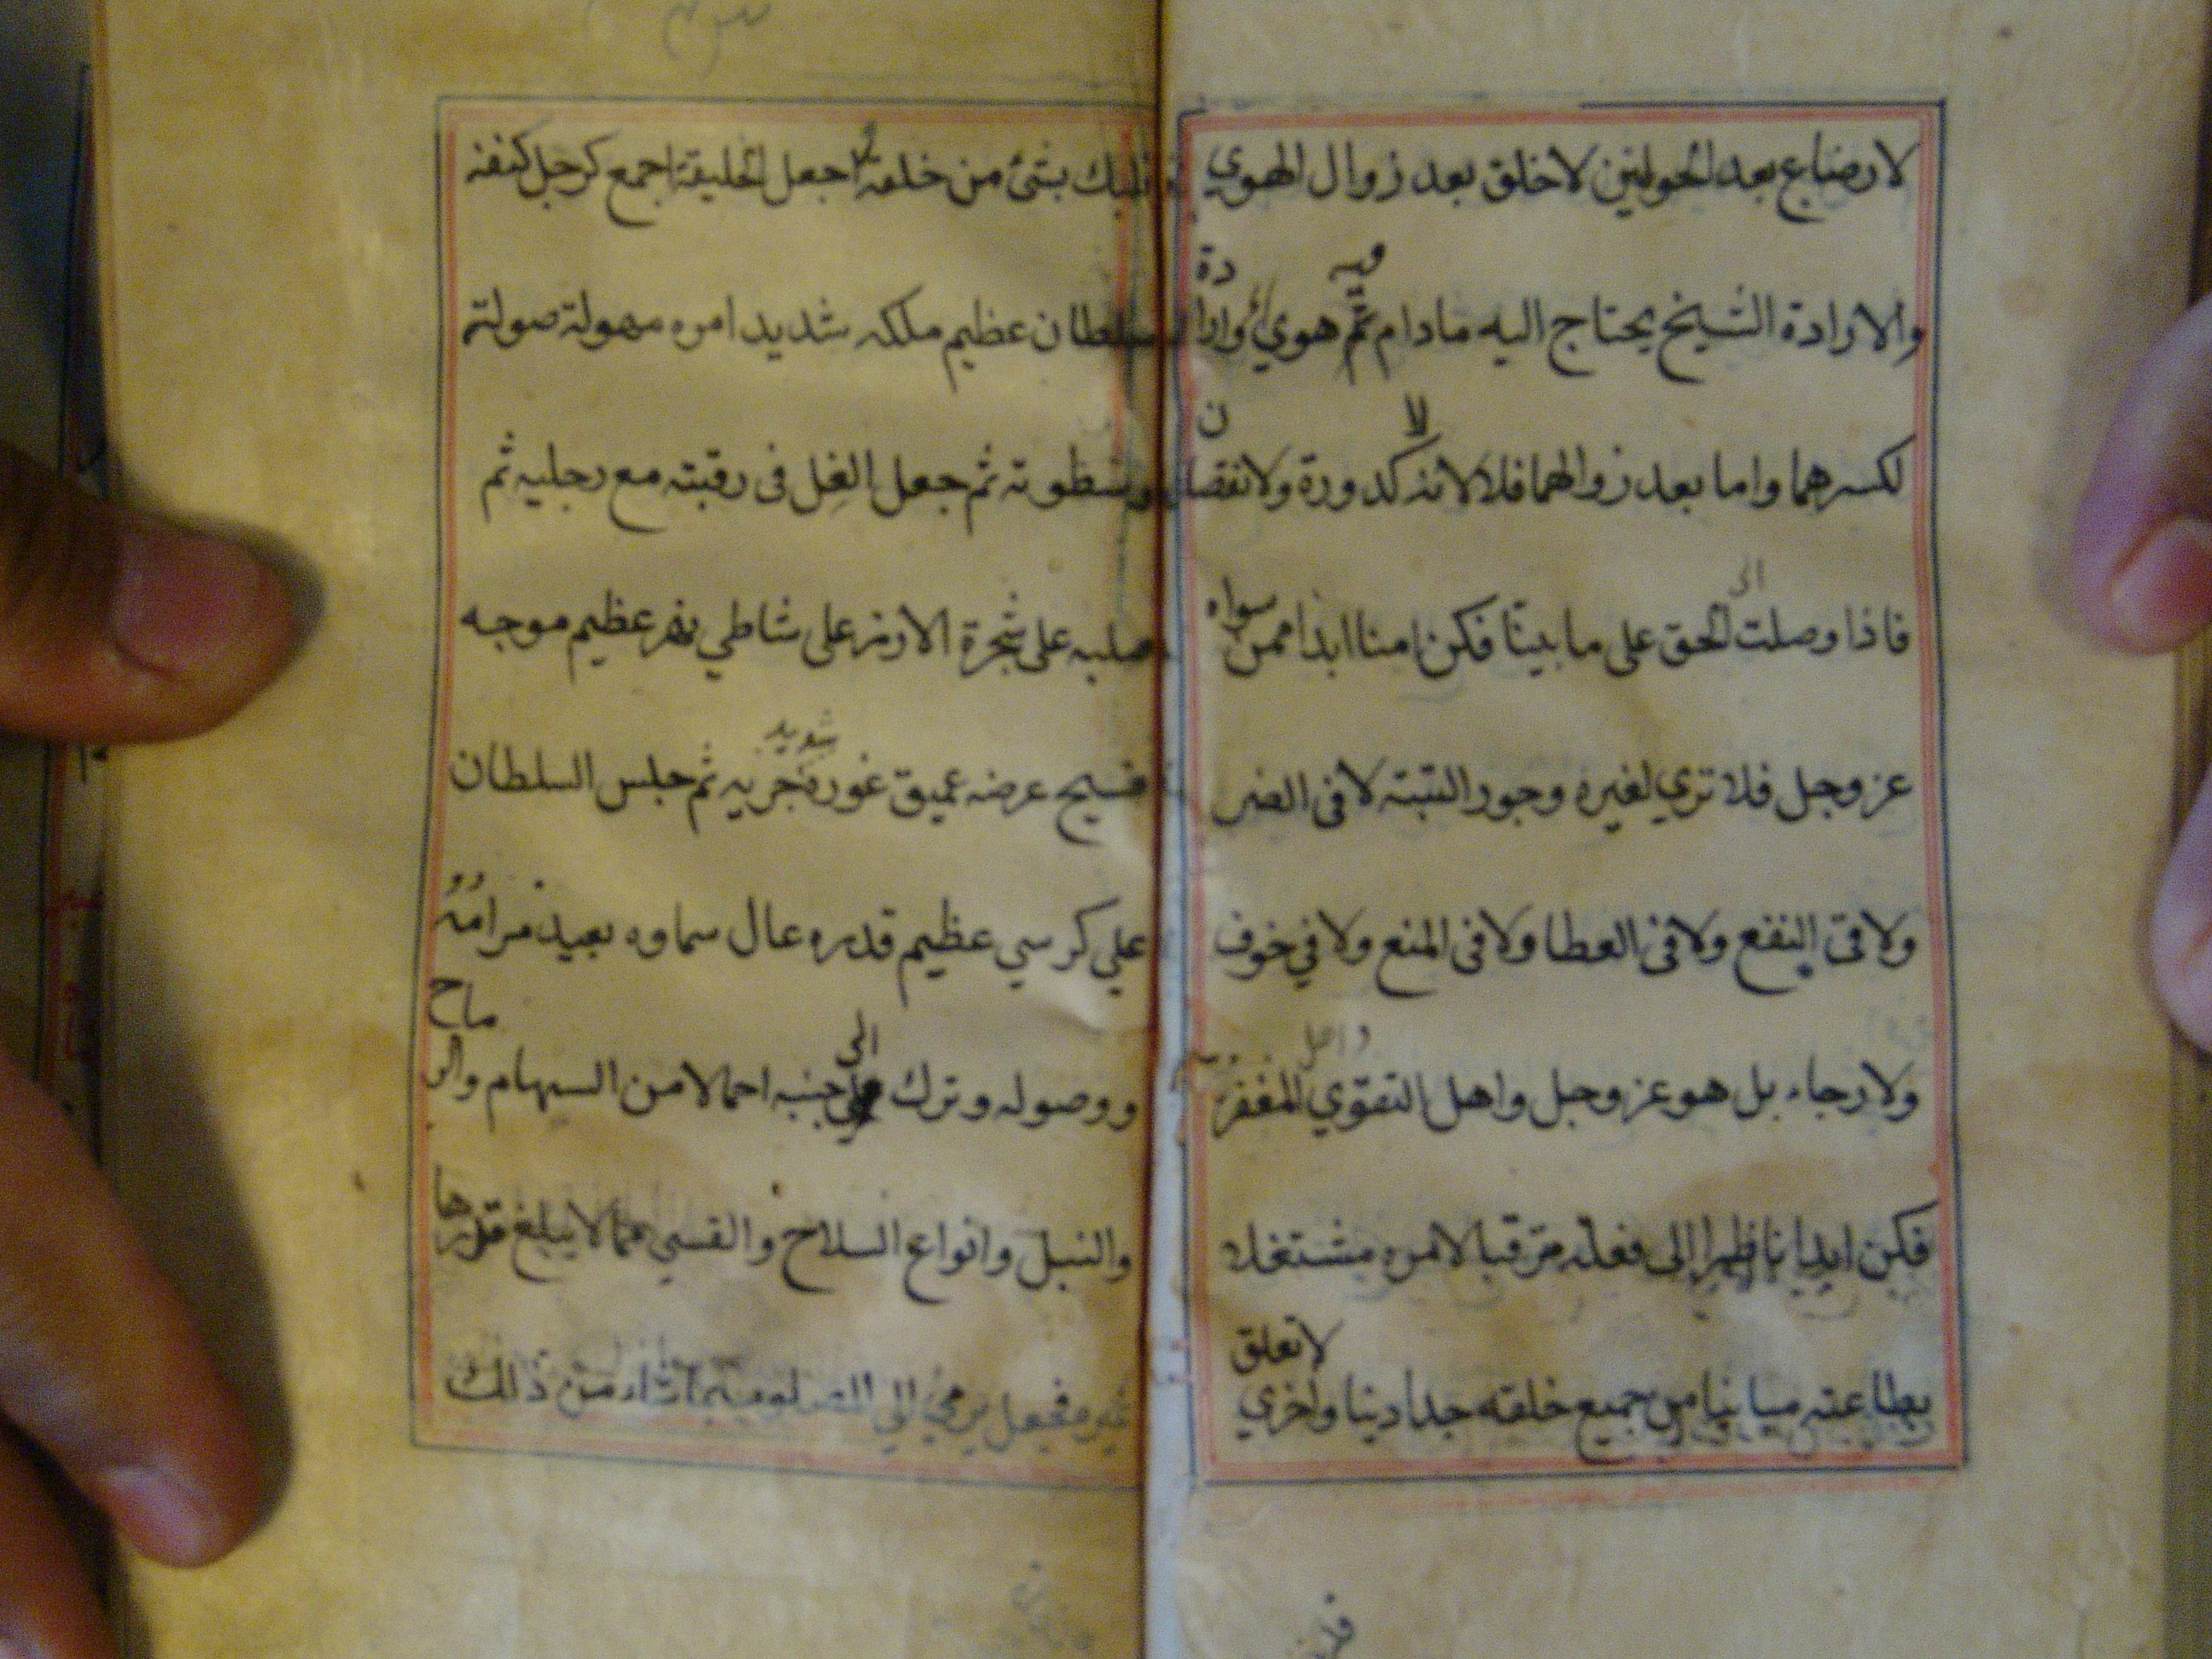 لا رضاع بعد الحولين لا خلق بعد زوال الهوي
والارادة الشيخ يحتاج اليه مادام ثم هوي وارا
دة
فيه
لكسرهما واما بعد زوالهما فلا لانه كدورة ولا نقصا
ن
لا
فاذا وصلت الحق على ما بينا فكن امنا ابدا ممن سواه
الى
عز وجل فلا تري لغيره وجور البتة لا فى الضر
ولا فى النفع ولا فى العطا ولا فى المنع ولا في خوف
ولا رجاء بل هو عز وجل واهل التقوي المغفرة
واهل
فكن ابدا ناظرا إلى فعله مترقبا لامره مشتغلا
بطاعته مباينا من جميع خلقه جدا دينا واخري
لا تعلق
قلبك بشئ من خلقه اجعل الخليقة اجمع كرجل كنفه
و
سلطان عظيم ملكه شديد امره مهولة صولته
وسطوته ثم جعل الغل فى رقبته مع رجليه ثم
صلبه على شجرة الارز على شاطي نهر عظيم موجه
فسيح عرضه عميق غوره جريه ثم جلس السلطان
شديد
علي كرسي عظيم قدره عال سماوه بعيد مرامه
ووصوله وترك جنبه احمالا من السهام والر
ماح
الى
والنبل وانواع السلاح والقسي مما لا يبلغ قدرها
غيره فجعل يرمي الي المصلوب بما شاء من ذلك